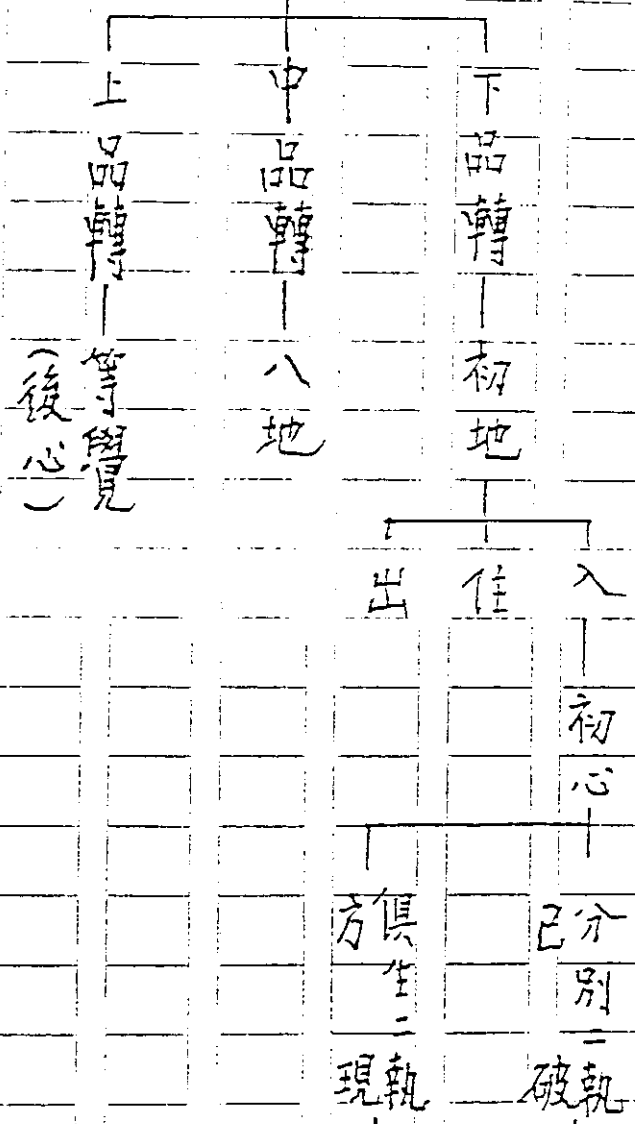 下品轉
初地
入
初心
分別二執
已破
俱生二執
方現
住
出
中品轉
八地
上品轉
等覺
(後心)